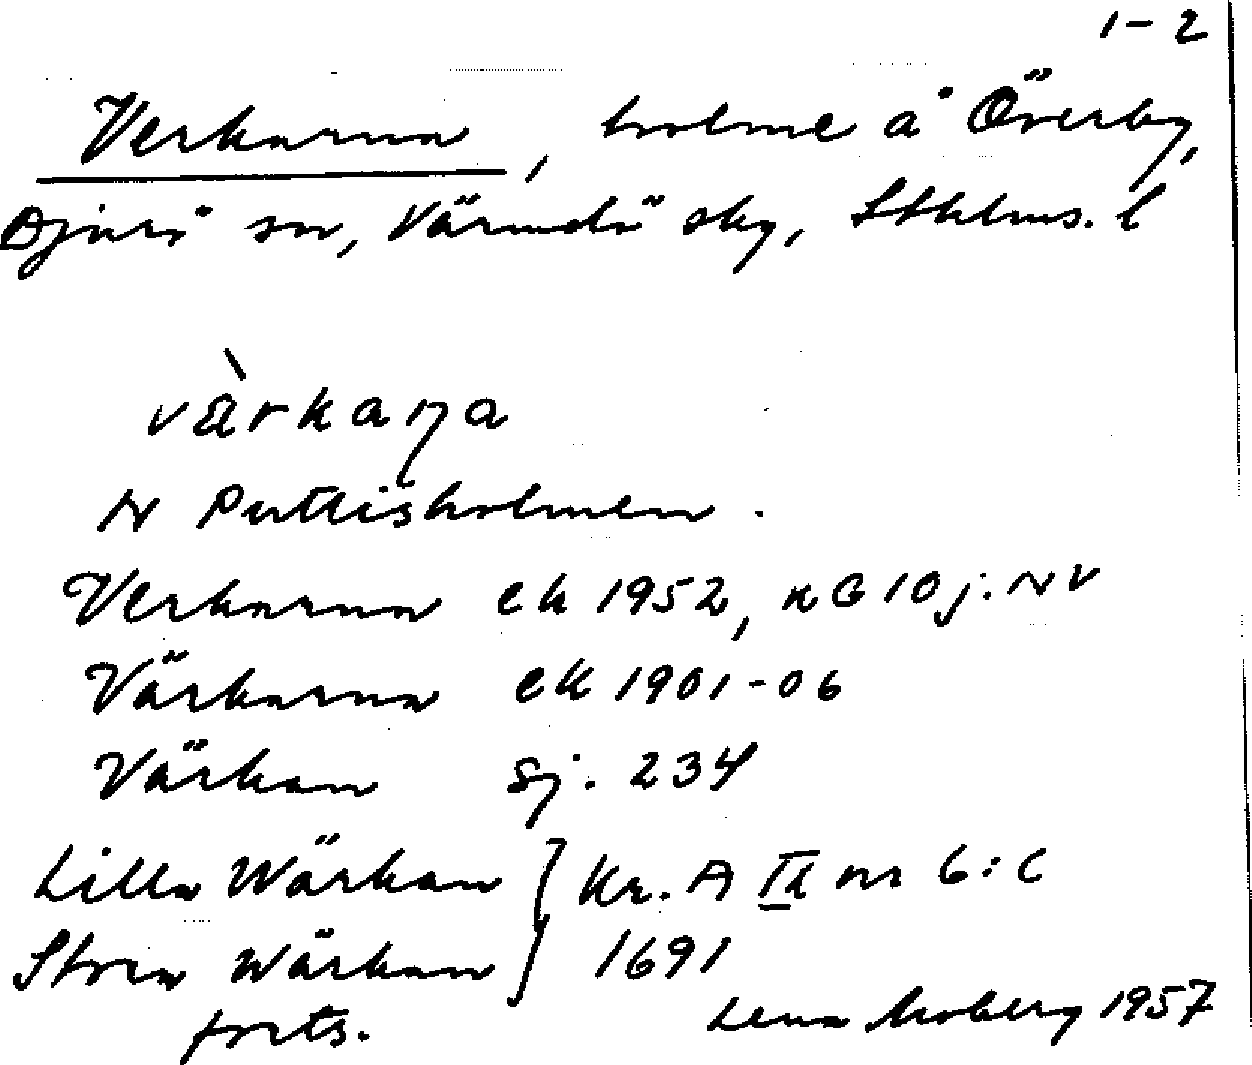 1-2
Verkarna, holme å Överby,
Djurö sn, Värmdö skg, Sthlms. l
vàrkaņa
N Puttisholmen.
Verkarna ek 1952, 10 j. NV
Värkarna ek 1901-06
Värkan sj. 234
Lilla Wärkan } Kr. A nr 6:c
Stora Wärkan } 1691
forts. Lena Moberg 1957